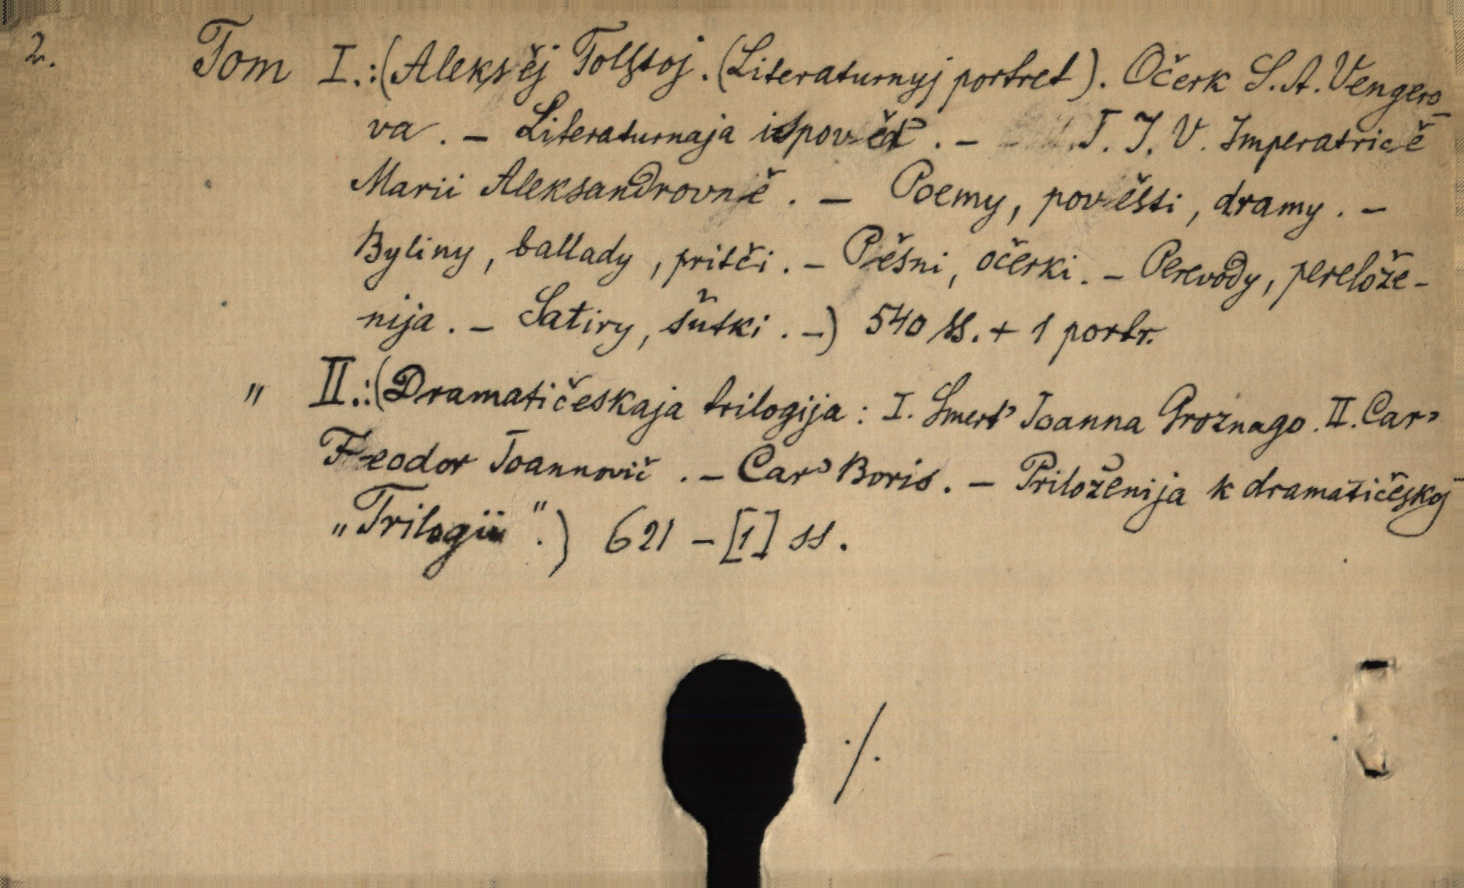 2.
Tom I.:(Aleksěj Tolstoj. (Literaturnyj portret). Očerk S.A. Vengero-
va. – Literaturnaja ispověd'. – I. V. Imperatricě
Marii Aleksandrovně. – Poemy, pověsti, dramy. –
Byliny, ballady, pritči. – Pěsni, očerki. – Perevody, perelože-
nija. – Satiry, šutki. –) 540 ss. + 1 portr.
" II.:(Dramatičeskaja trilogija: I. Smert' Ioanna Groznago. II. Car'
Feodor Ioannovič. – Car' Boris. – Priloženija k dramatičeskoj
„Trilogii".) 621 – [1] ss.
./.